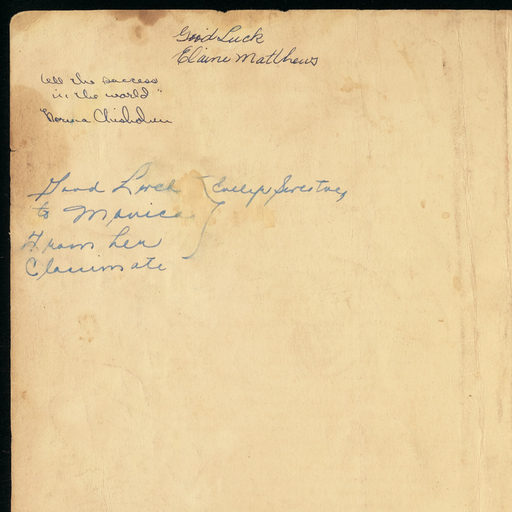 Good Luck
Elaine Matthews
all the success
in the world"
Norma Chisholm
Good Luck
to Monica
From her
Classmate